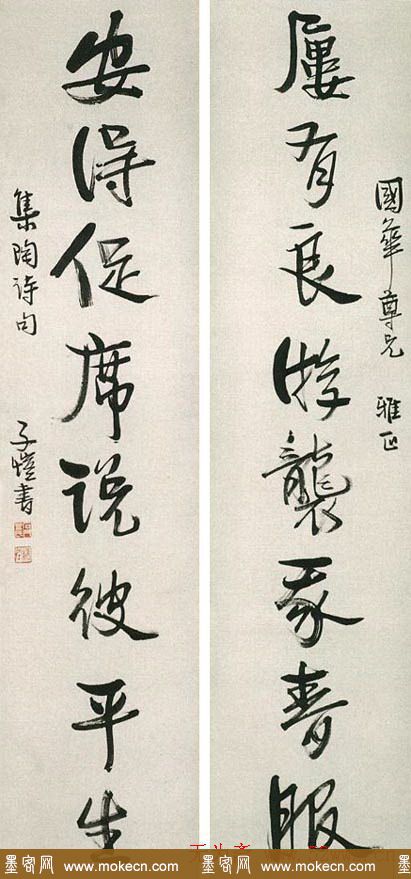 國華尊兄 雅正
屢有良游襲我春服
安得促席説彼平生
集陶詩句 子愷書
墨客网 www.mokecn.com 墨客网 www.mokecn.com 墨客网